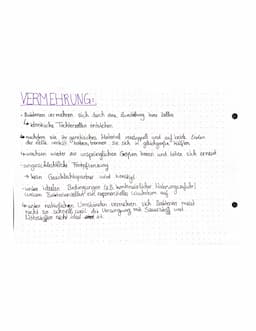 VERMEHRUNG:
- Bakterien vermehren sich durch eine Zweiteilung ihrer Zellen
↳ identische Tochterzellen entstehen
↳ nachdem sie ihr genetisches Material verdoppelt und auf beide Enden
der Zelle verteilt haben, trennen sie sich in gleichgroße Hälften
↳ wachsen wieder zur ursprünglichen Größe heran und teilen sich erneut
- ungeschlechtliche Fortpflanzung
→ kein Geschlechtspartner wird benötigt
- unter idealen Bedingungen (z.B. kontinuierlicher Nahrungszufuhr)
weisen Bakterienzellen ein exponentielles Wachstum auf
↳ unter natürlichen Umständen vermehren sich Bakterien meist
nicht so schnell, weil die Versorgung mit Sauerstoff und
Nährstoffen nicht ideal ist